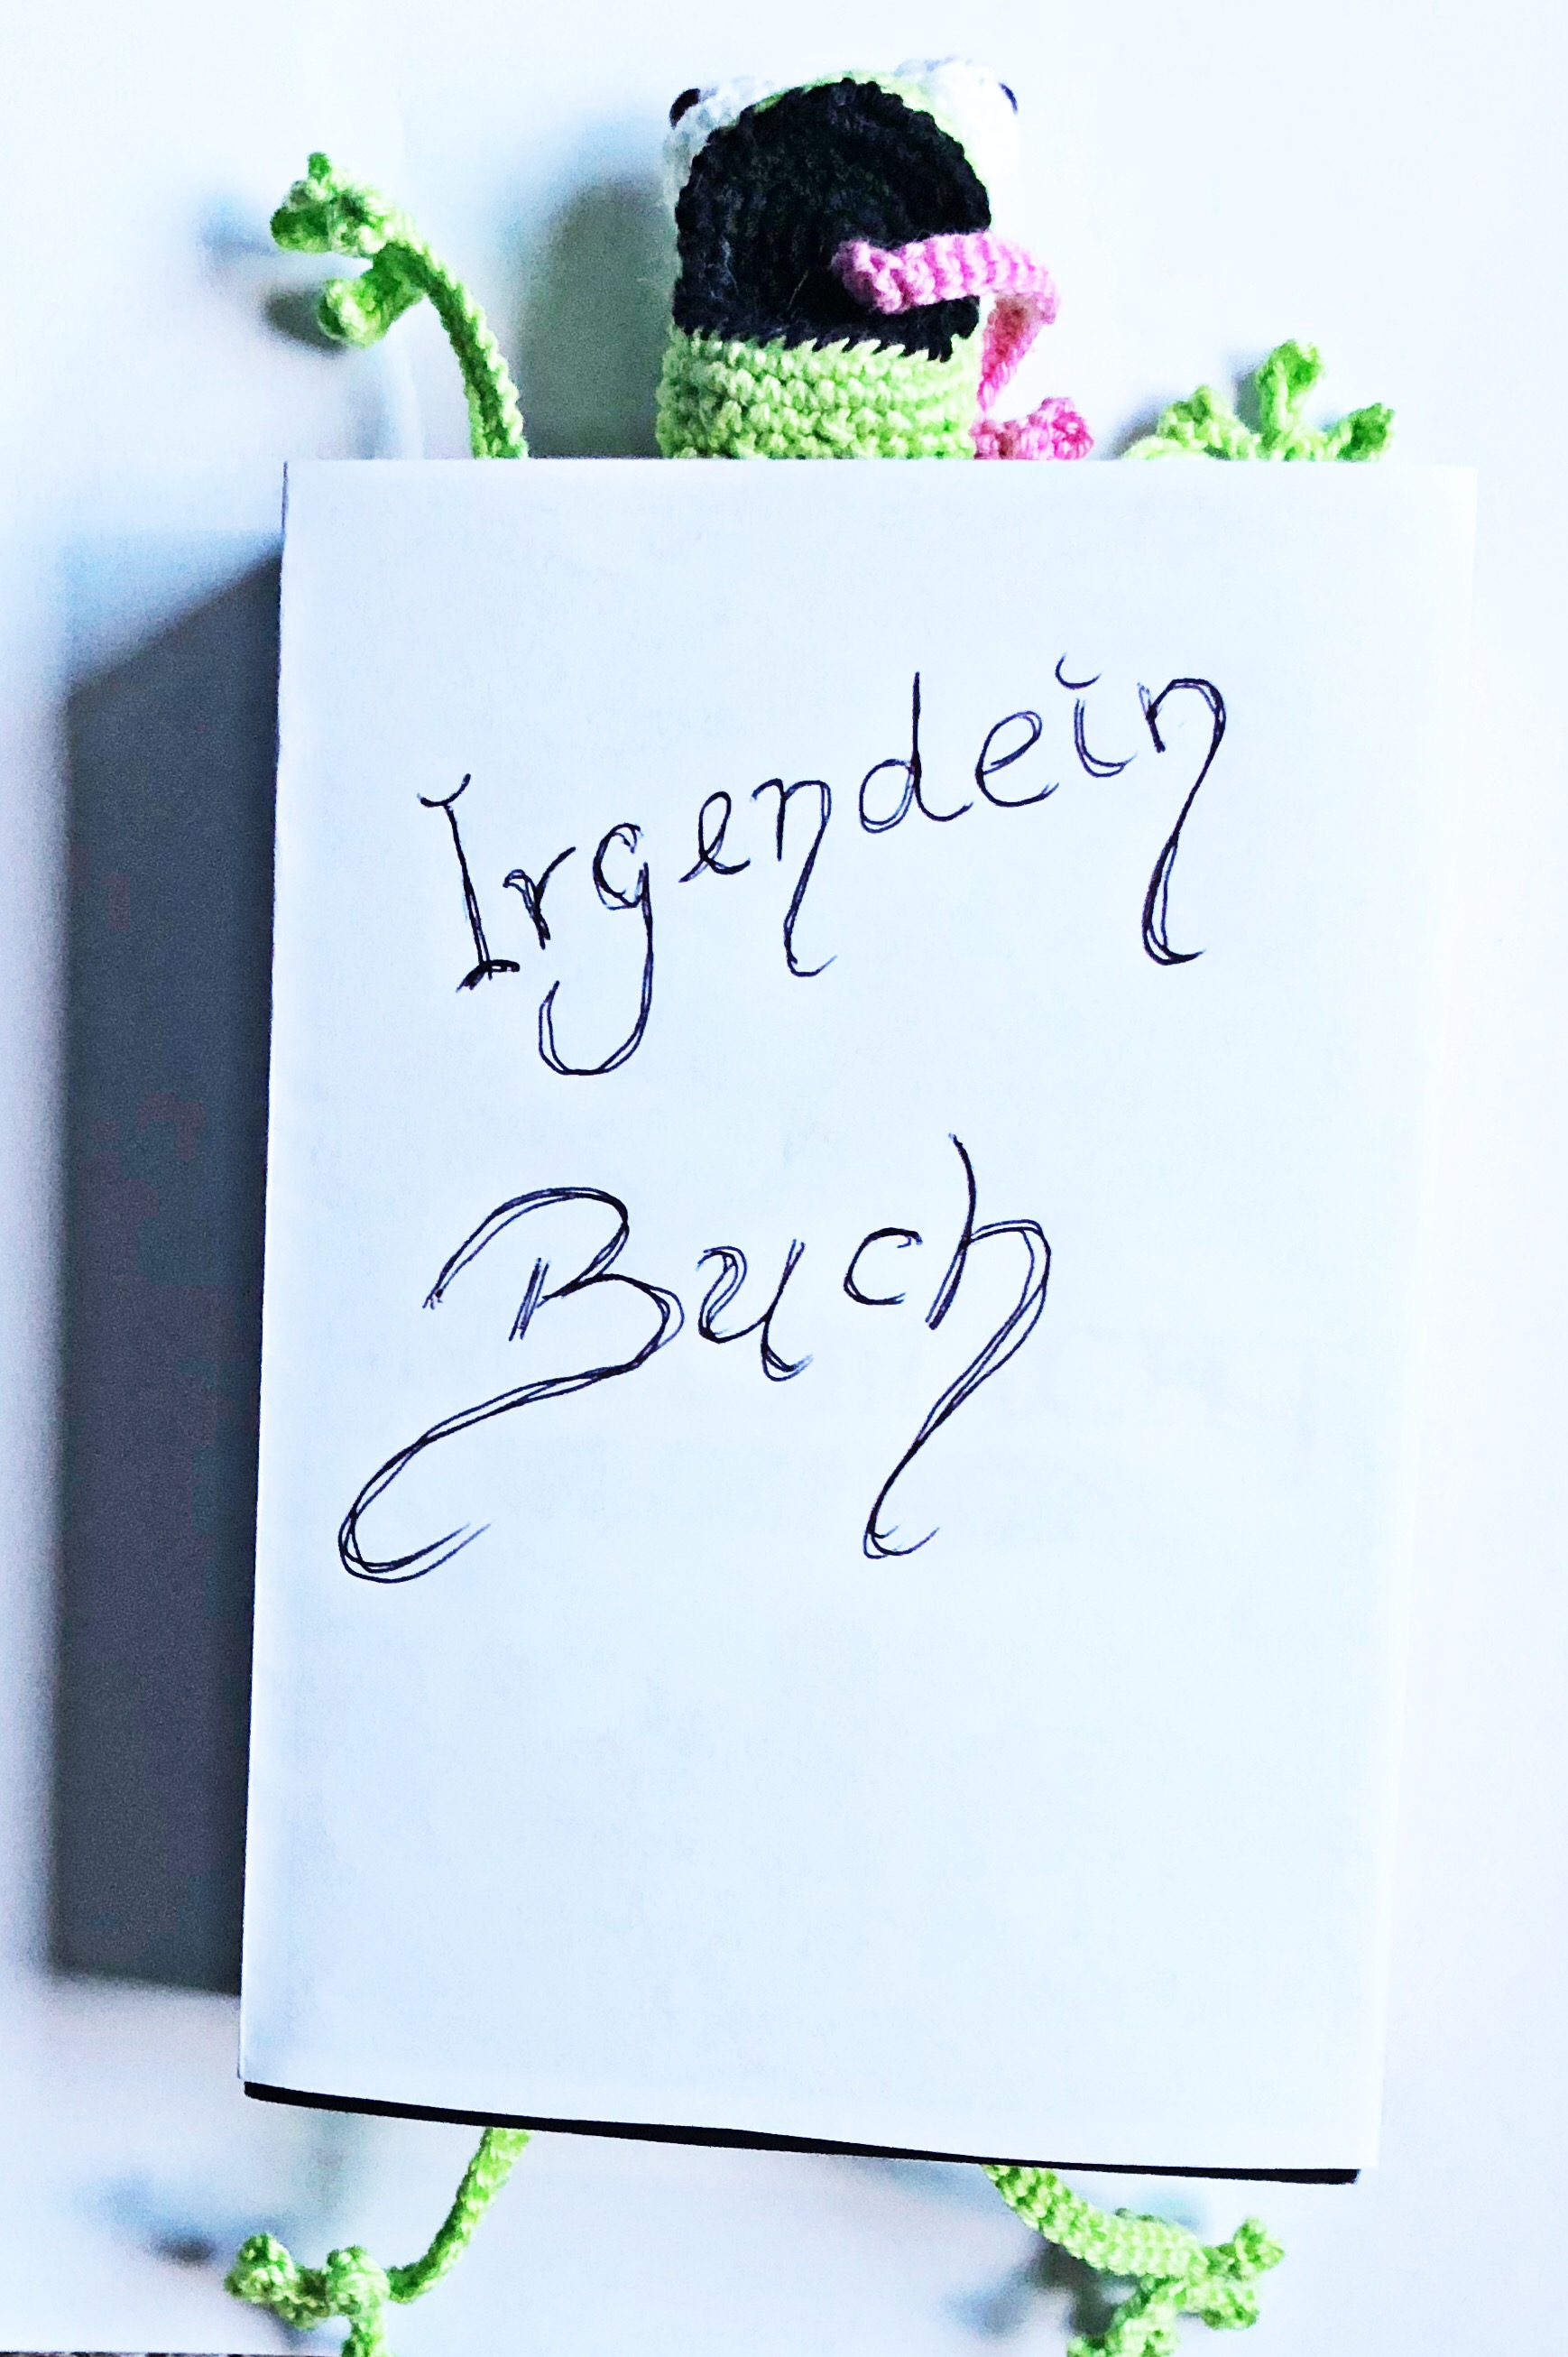 Irgendein
Buch